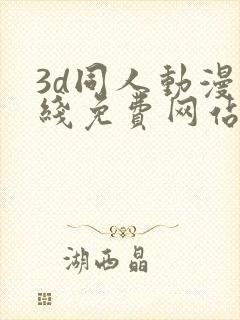 3d同人動漫
綫免費网佔
湖西晶